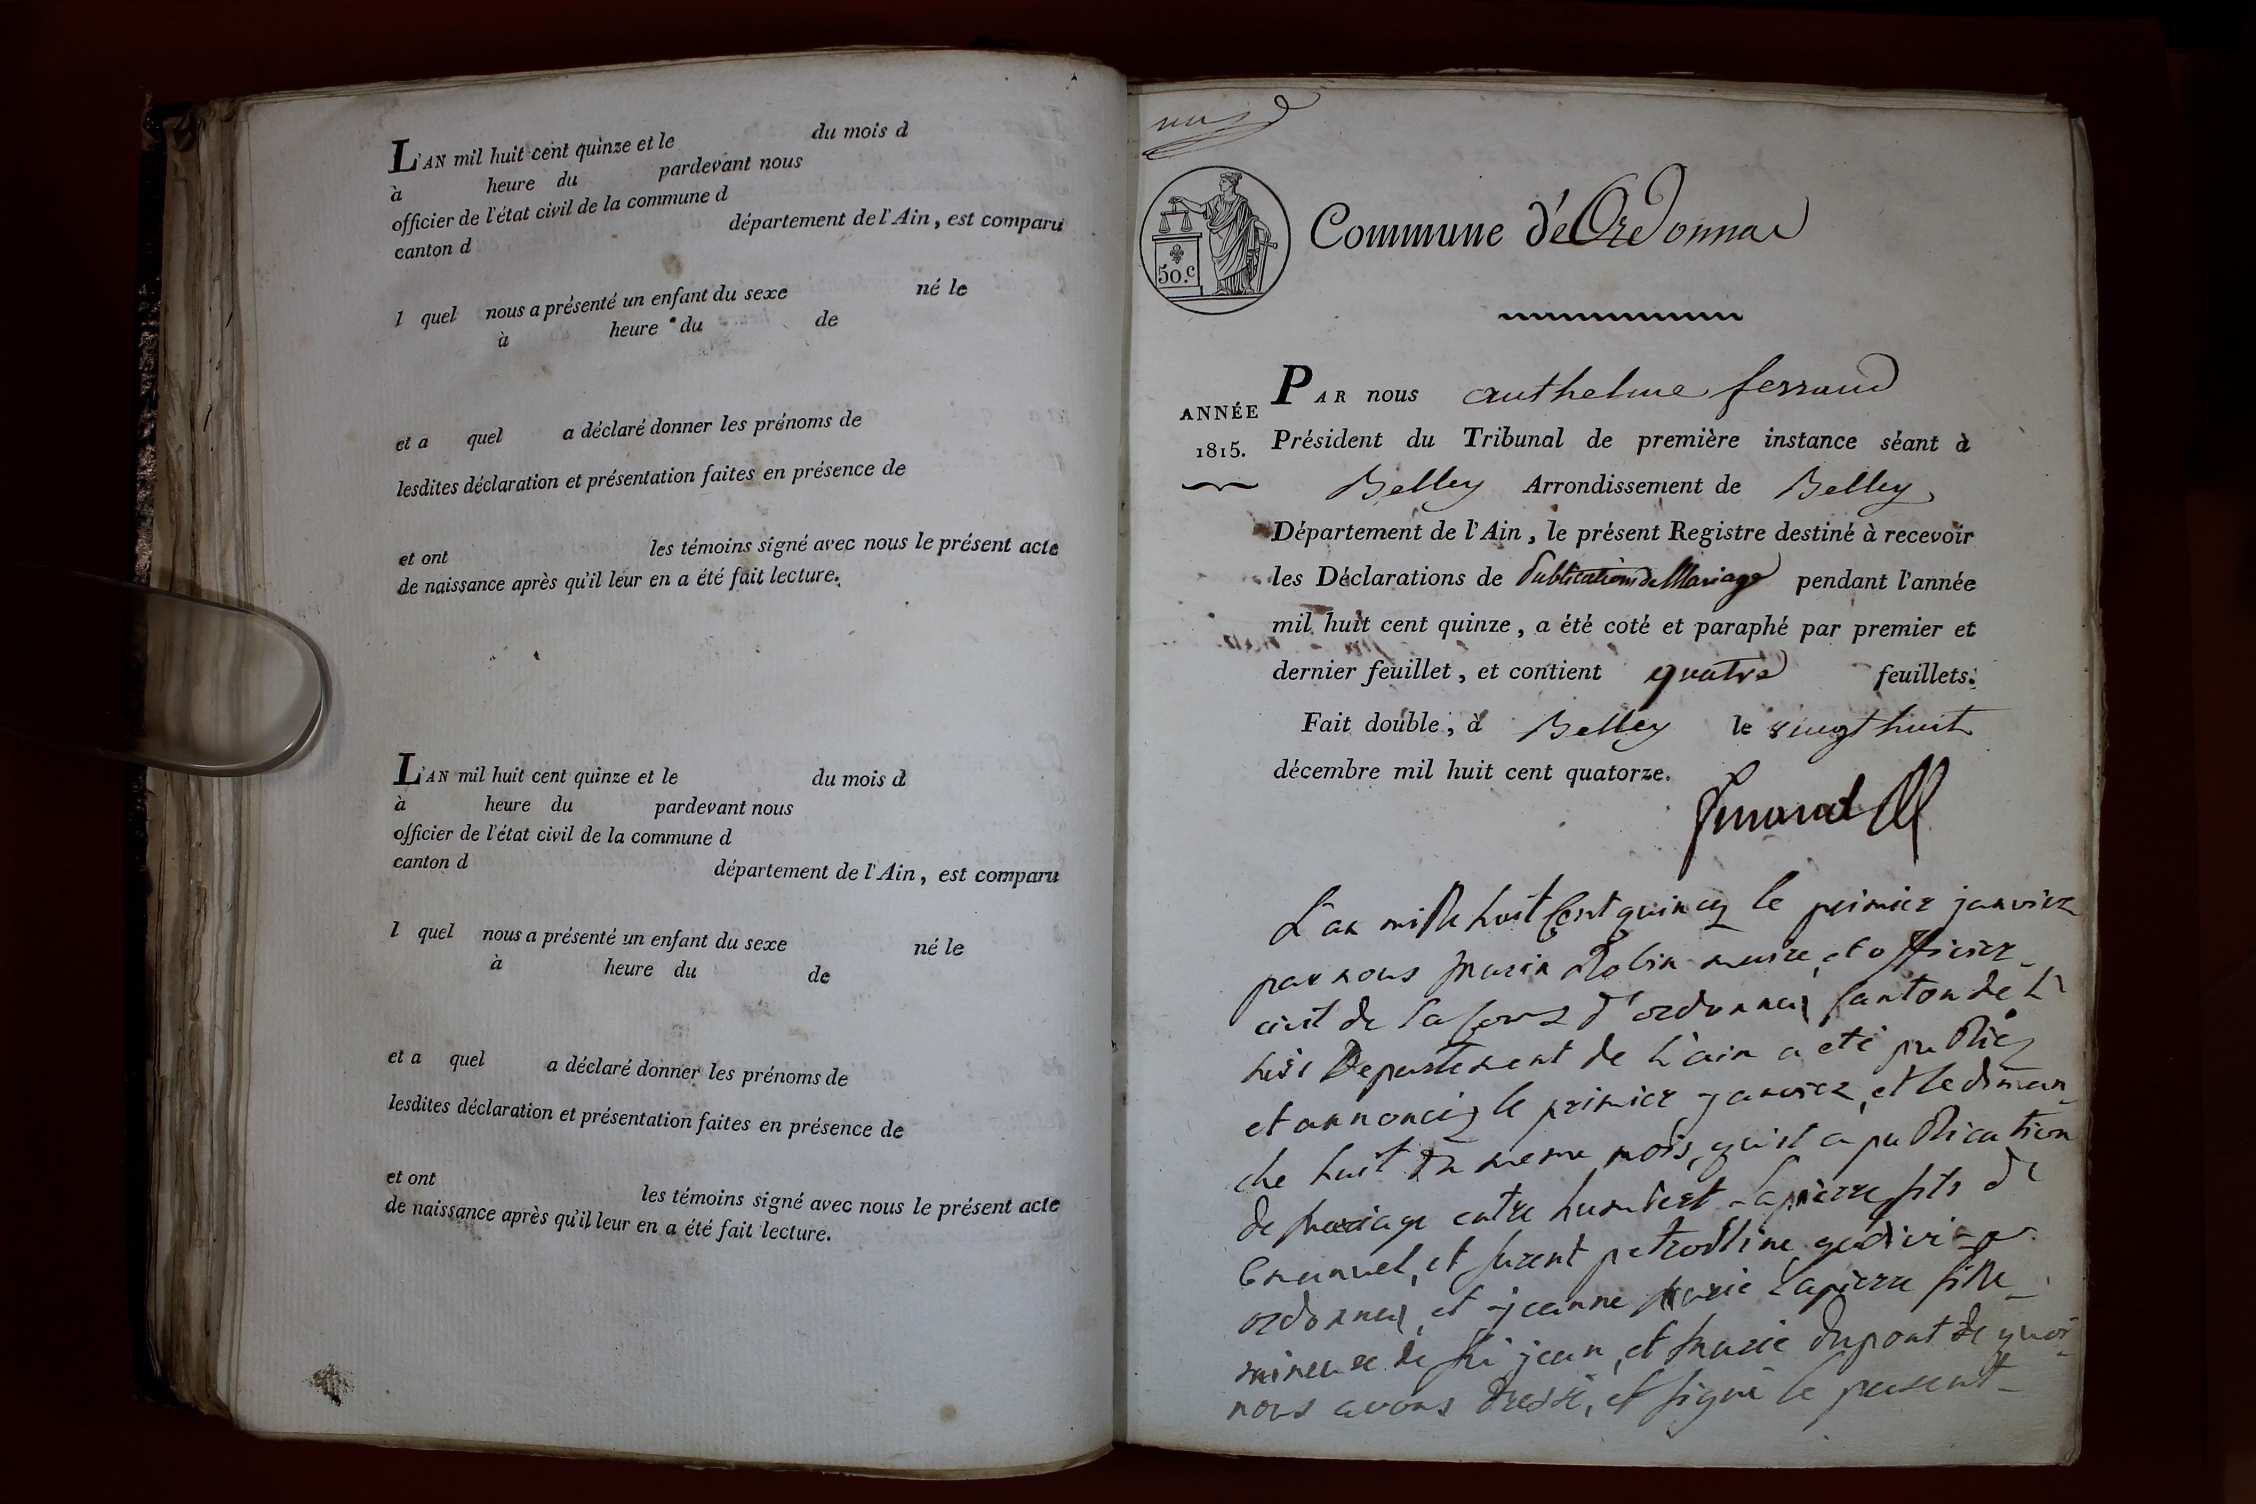 L'AN mil huit cent quinze et le du mois d
à heure du pardevant nous
officier de l'état civil de la commune d
canton d département de l'Ain, est comparu
l quel nous a présenté un enfant du sexe né le
à heure du de
et a quel a déclaré donner les prénoms de
lesdites déclaration et présentation faites en présence de
et ont les témoins signé avec nous le présent acte
de naissance après qu'il leur en a été fait lecture.
L'AN mil huit cent quinze et le du mois d
à heure du pardevant nous
officier de l'état civil de la commune d
canton d département de l'Ain, est comparu
l quel nous a présenté un enfant du sexe né le
à heure du de
et a quel a déclaré donner les prénoms de
lesdites déclaration et présentation faites en présence de
et ont les témoins signé avec nous le présent acte
de naissance après qu'il leur en a été fait lecture.
50.c
Commune d'Ordonnas
ANNÉE
1815.
PAR nous anthelme ferrand
Président du Tribunal de première instance séant à
Belley Arrondissement de Belley,
Département de l'Ain, le présent Registre destiné à recevoir
les Déclarations de Publications de Mariage pendant l'année
mil huit cent quinze, a été coté et paraphé par premier et
dernier feuillet, et contient quatre feuillets.
Fait double, à Belley le vingt huit
décembre mil huit cent quatorze.
L'an mille huit Cent quinez le primier janvier
par nous marin Robin maire, et officier
civil de la Com d'ordonnas Canton de L
huis Departement de L'ain a eté publiez
et annoncez le primier janvier, et le diman
che huit du meme mois, publication
de mariage entre humbert Lapierre fils de
Emanuel, et
ordonnas, et jeanne marie Lapierre fille
mineure de fu jean, et marie dupont de quoi
nous avons dressé, et signé le present